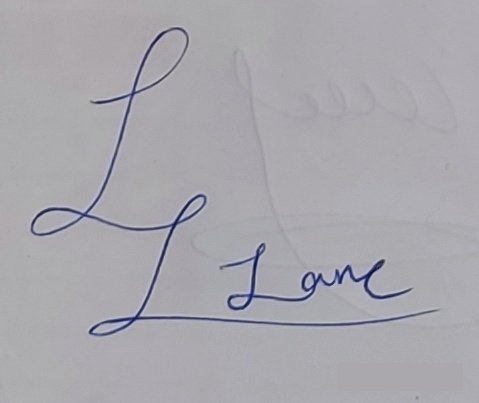 L
L Lane